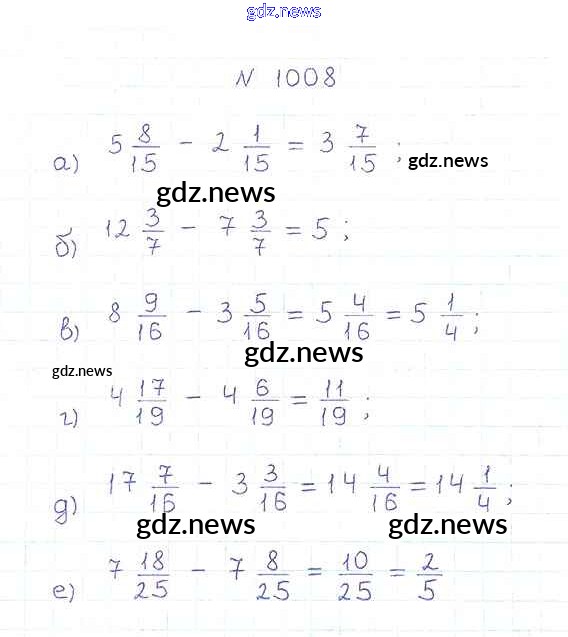 gdz.news
N 1008
а) 5 8/15 - 2 1/15 = 3 7/15 ; gdz.news
gdz.news
б) 12 3/7 - 7 3/7 = 5 ;
в) 8 9/16 - 3 5/16 = 5 4/16 = 5 1/4 ;
gdz.news
gdz.news
г) 4 17/19 - 4 6/19 = 11/19 ;
д) 17 7/16 - 3 3/16 = 14 4/16 = 14 1/4 ;
gdz.news gdz.news
е) 7 18/25 - 7 8/25 = 10/25 = 2/5